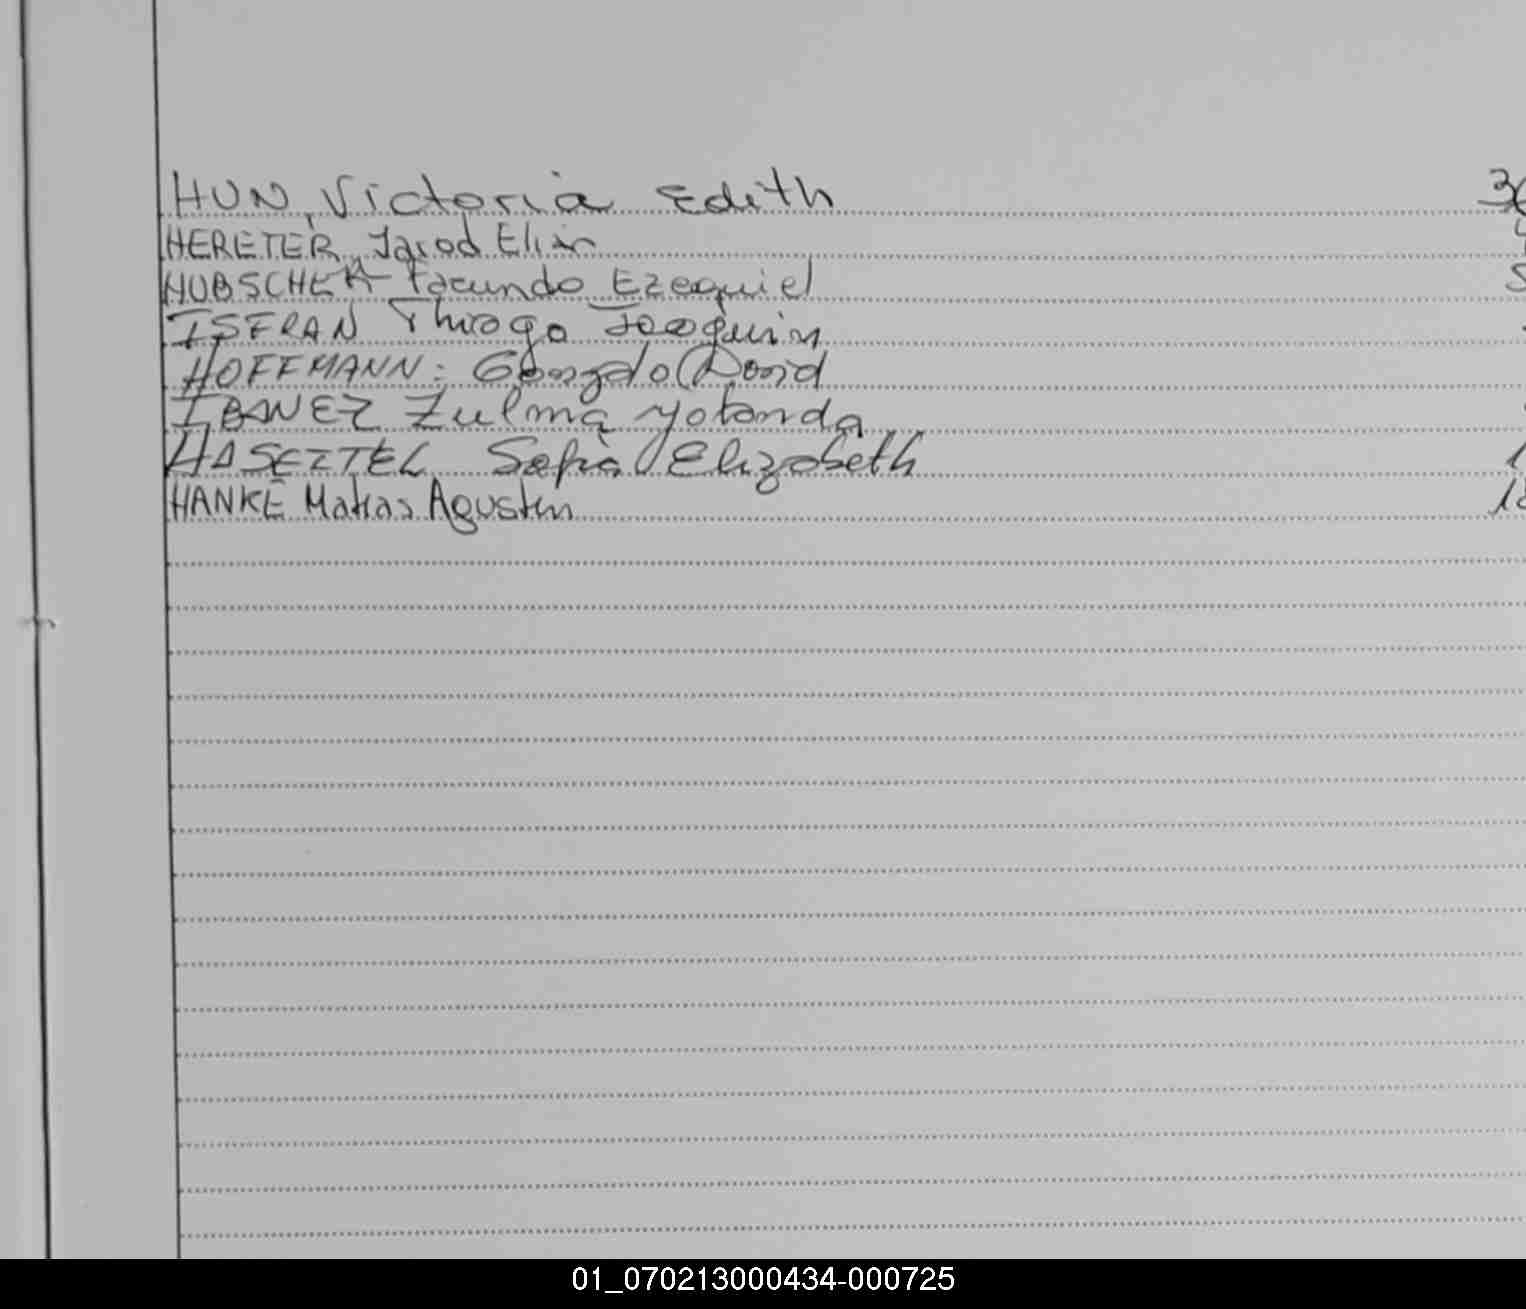 HUN, Victoria Edith 36
HERETER, Jarod Elian
HUBSCHER Facundo Ezequiel
ISFRAN Thiago Joaquin
HOFFMANN: Gonzalo David
IBANEZ Zulma Yolanda
HASEITEL Sofia Elizabeth 1
HANKE Matias Agustin 18
01_070213000434-000725